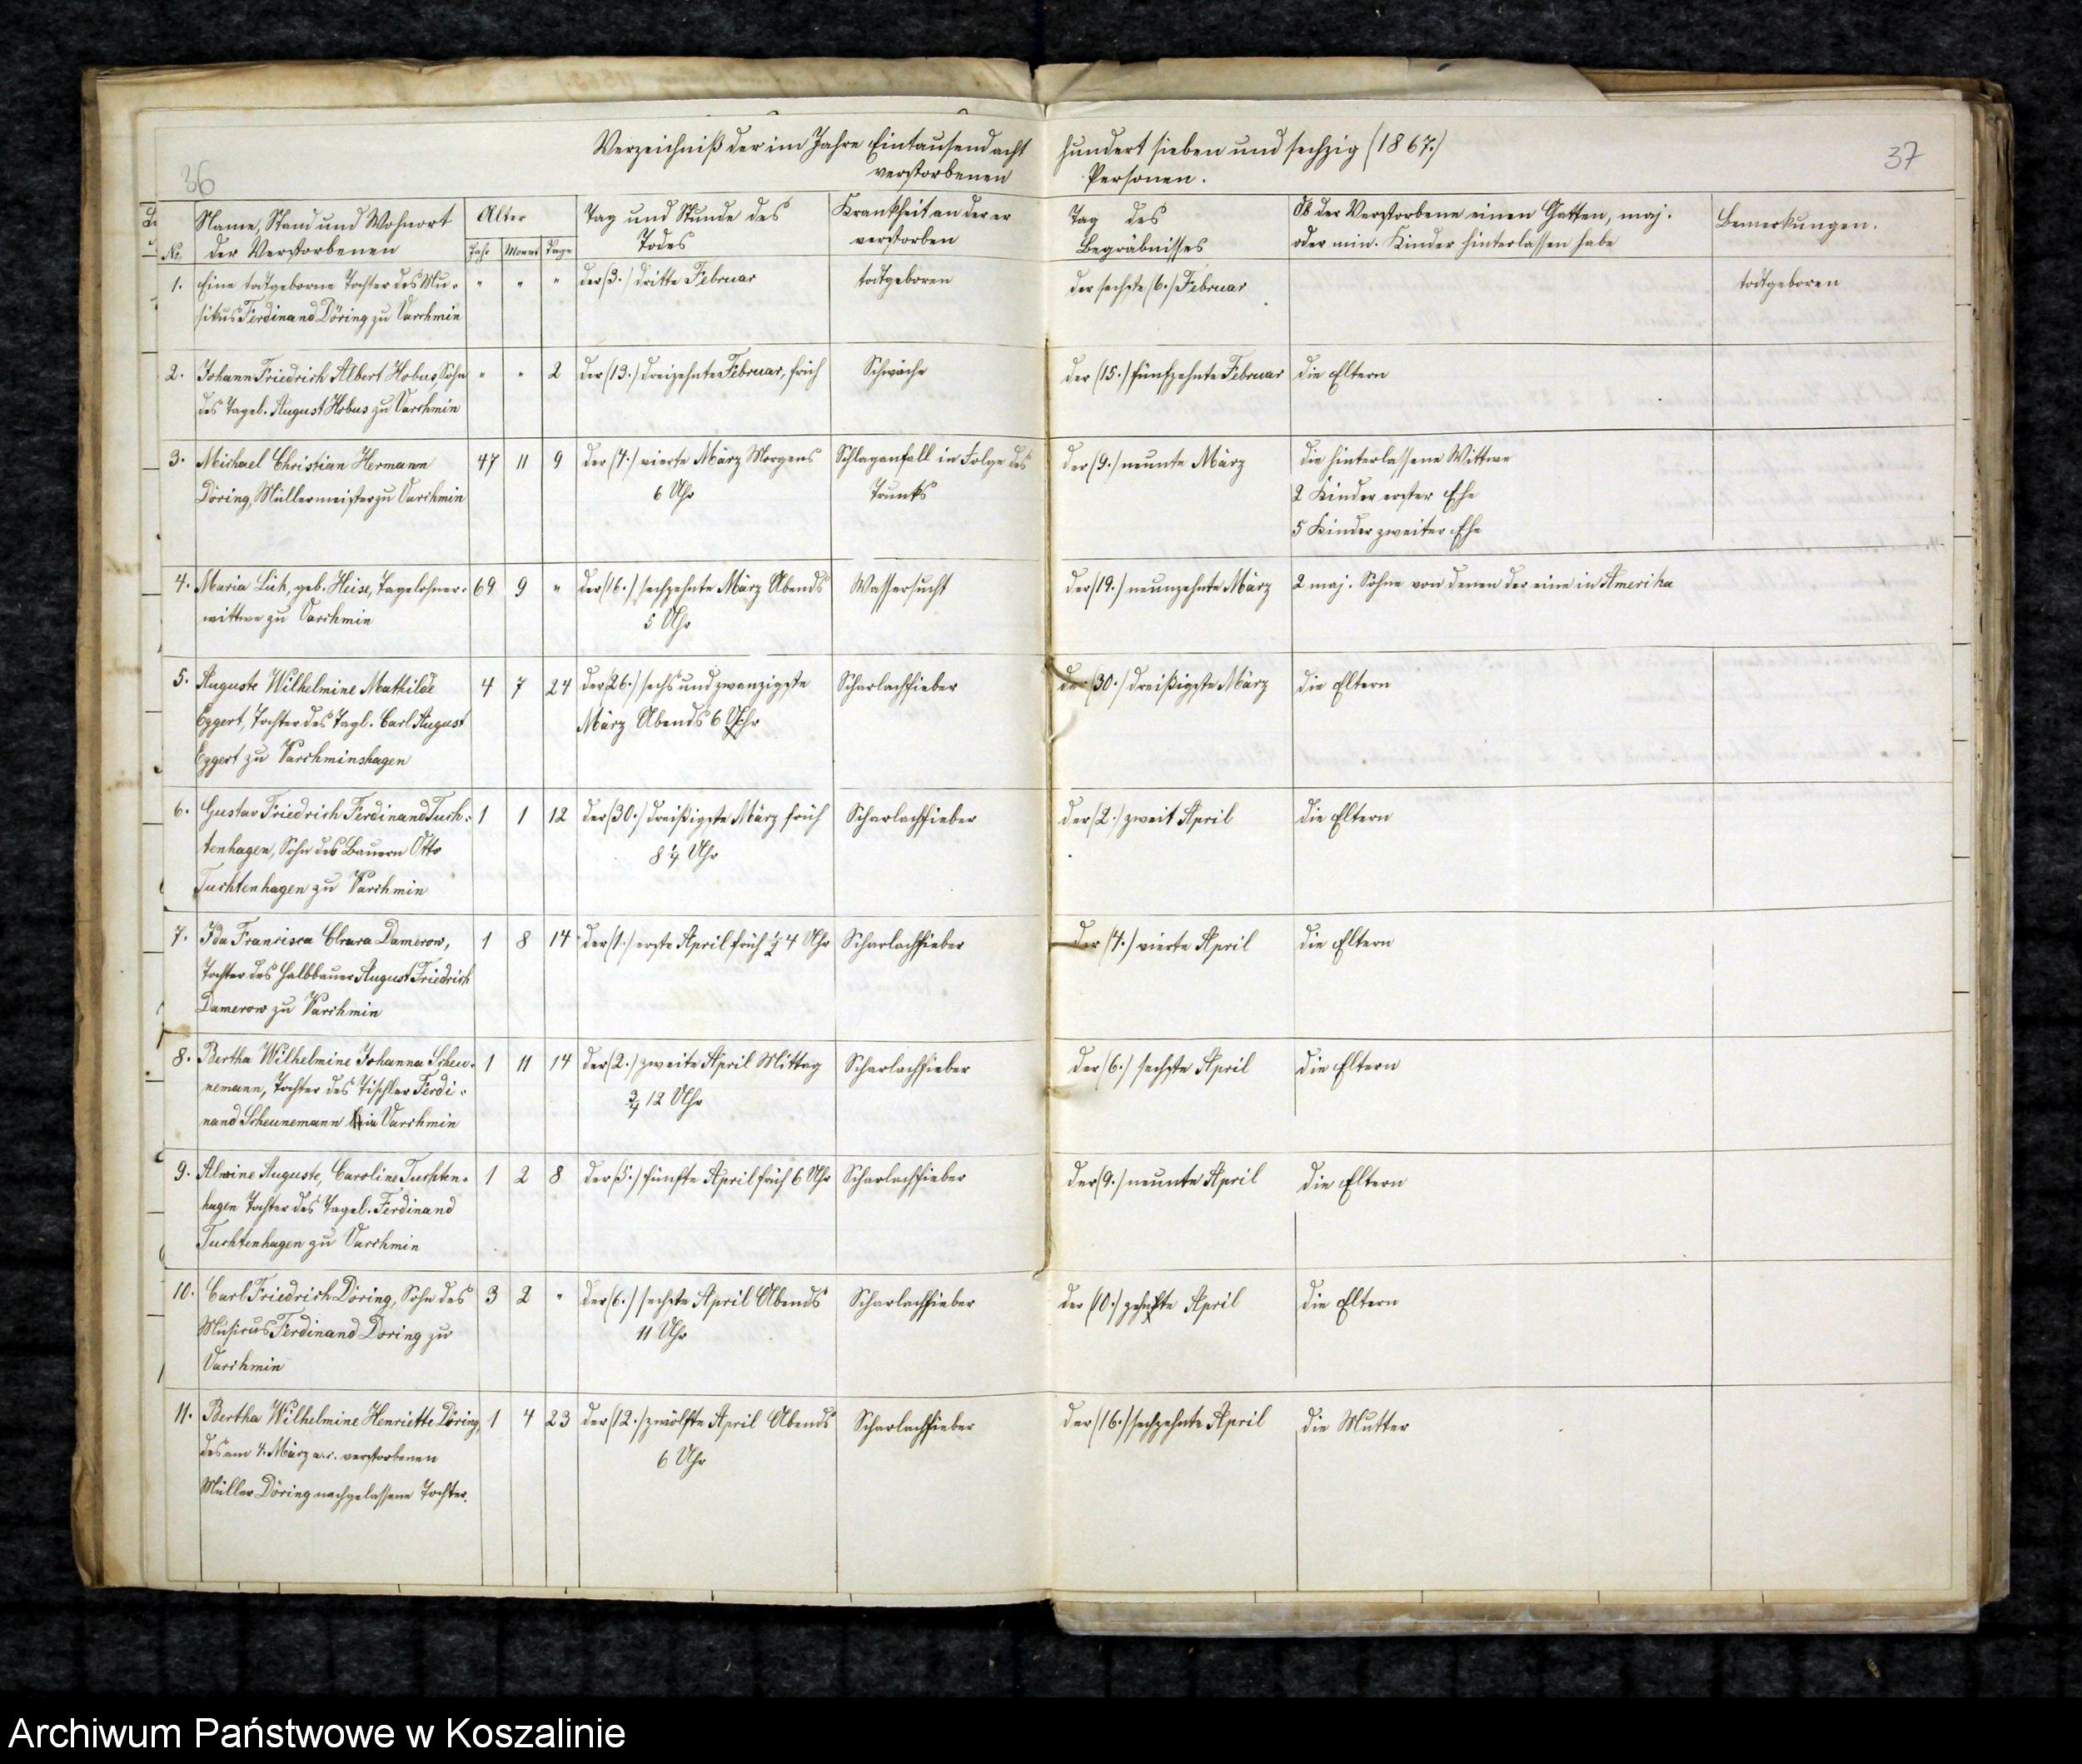 36
Verzeichniß der im Jahre Eintausend acht
verstorbenen
hundert sieben und sechzig (1867.)
Personen.
37
No.
Name, Stand und Wohnort
der Verstorbenen
Alter
Jahr Monat Tage
Tag und Stunde des
Todes
Krankheit an der er
verstorben
Tag des
Begräbnisses
Ob der Verstorbene einen Gatten, maj.
oder min. Kinder hinterlassen habe
Bemerkungen.
1. Eine todtgeborne Tochter des Mu- " " " der (3.) dritte Februar todtgeboren der sechste (6.) Februar todtgeboren
sikus Ferdinand Döring zu Varchmin
2. Johann Friedrich Albert Hobus Sohn " " 2 der (13.) dreizehnte Februar, früh Schwäche der (15.) fünfzehnte Februar die Eltern
des Tagel. August Hobus zu Varchmin
3. Michael Christian Hermann 47 11 9 der (4.) vierte März Morgens Schlaganfall in Folge des der (9.) neunte März die hinterlassene Wittwe
Döring, Müllermeister zu Varchmin 6 Uhr Trunks 2 Kinder erster Ehe
5 Kinder zweiter Ehe
4. Maria Lüh, geb. Heise, Tagelohner- 69 9 " der (16.) sechzehnte März Abends Wassersucht der (19.) neunzehnte März 2 maj. Söhne von denen der eine in Amerika
wittwe zu Varchmin 5 Uhr
5. Auguste Wilhelmine Mathilde 4 7 24 der (26.) sechs und zwanzigste Scharlachfieber der (30.) dreißigste März die Eltern
Eggert, Tochter des Tagl. Carl August März Abends 6 Uhr
Eggert zu Varchminshagen
6. Gustav Friedrich Ferdinand Tuch- 1 1 12 der (30.) dreißigste März früh Scharlachfieber der (2.) zweit April die Eltern
tenhagen, Sohn des Bauern Otto 8 1/4 Uhr
Tuchtenhagen zu Varchmin
7. Ida Francisca Clara Damerow, 1 8 14 der (1.) erste April früh 1/2 4 Uhr Scharlachfieber der (4.) vierte April die Eltern
Tochter des Halbbauer August Friedrich
Damerow zu Varchmin
8. Bertha Wilhelmine Johanna Scheu- 1 11 14 der (2.) zweite April Mittag Scharlachfieber der (6.) sechste April die Eltern
nemann, Tochter des Tischler Ferdi- 3/4 12 Uhr
nand Scheunemann in Varchmin
9. Alwine Auguste, Caroline Tuchten- 1 2 8 der (5.) fünfte April früh 6 Uhr Scharlachfieber der (9.) neunte April die Eltern
hagen Tochter des Tagel. Ferdinand
Tuchtenhagen zu Varchmin
10. Carl Friedrich Döring, Sohn des 3 2 " der (6.) sechste April Abends Scharlachfieber der (10.) zehnte April die Eltern
Musicus Ferdinand Doring zu 11 Uhr
Varchmin
11. Bertha Wilhelmine Henriette Döring, 1 4 23 der (12.) zwölfte April Abends Scharlachfieber der (16.) sechzehnte April die Mutter
des am 4. März a. c. verstorbenen 6 Uhr
Müller Döring nachgelassene Tochter.
Archiwum Państwowe w Koszalinie